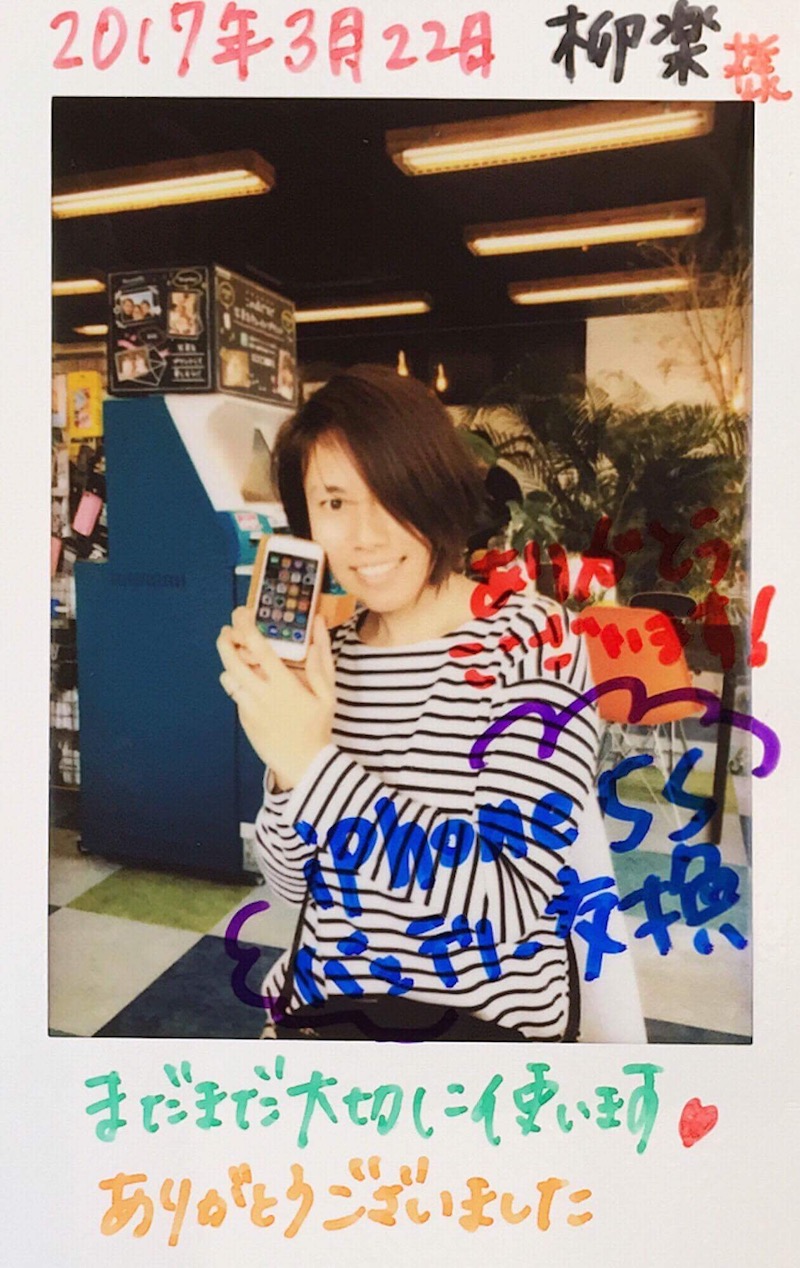 2017年3月22日 柳楽様
ありがとう
ございます!
iphone 5S
バッテリー交換
まだまだ大切に使います♥
ありがとうございました